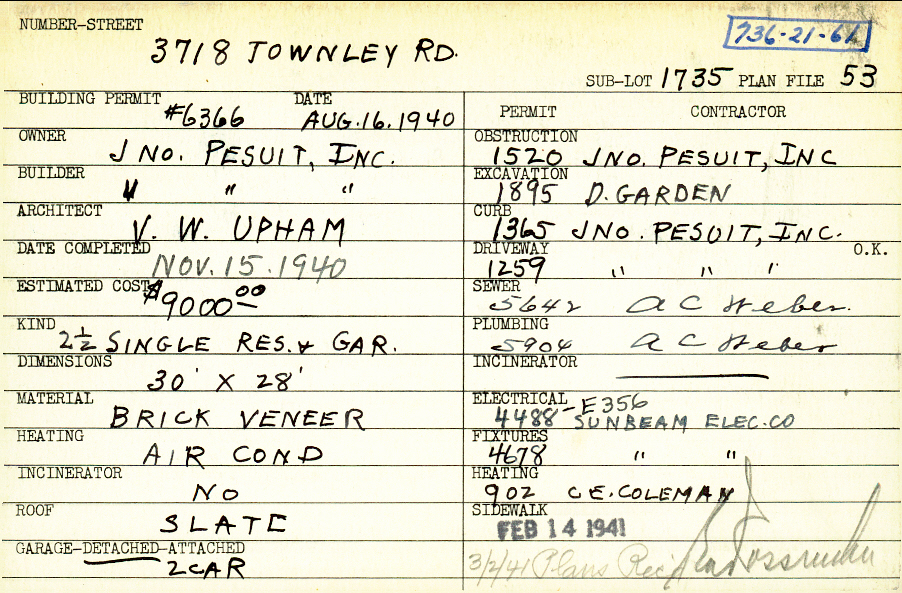 NUMBER-STREET
3718 TOWNLEY RD.
736-21-61
SUB-LOT 1735 PLAN FILE 53
BUILDING PERMIT DATE
#6366 AUG.16.1940
OWNER
JNO. PESUIT, INC.
BUILDER
" " "
ARCHITECT
V. W. UPHAM
DATE COMPLETED
NOV. 15. 1940
ESTIMATED COST
$9000.00
KIND
2½ SINGLE RES. & GAR.
DIMENSIONS
30' X 28'
MATERIAL
BRICK VENEER
HEATING
AIR COND
INCINERATOR
NO
ROOF
SLATE
GARAGE-DETACHED-ATTACHED
2 CAR
PERMIT CONTRACTOR
OBSTRUCTION
1520 JNO. PESUIT, INC
EXCAVATION
1895 D. GARDEN
CURB
1365 JNO. PESUIT, INC.
DRIVEWAY O.K.
1259 " " "
SEWER
5642 A C Weber.
PLUMBING
5904 A C Weber
INCINERATOR
ELECTRICAL
4488-E356
SUNBEAM ELEC. CO
FIXTURES
4678 " "
HEATING
902 C.E. COLEMAN
SIDEWALK
FEB 14 1941
3/2/41 Plans Rec'd